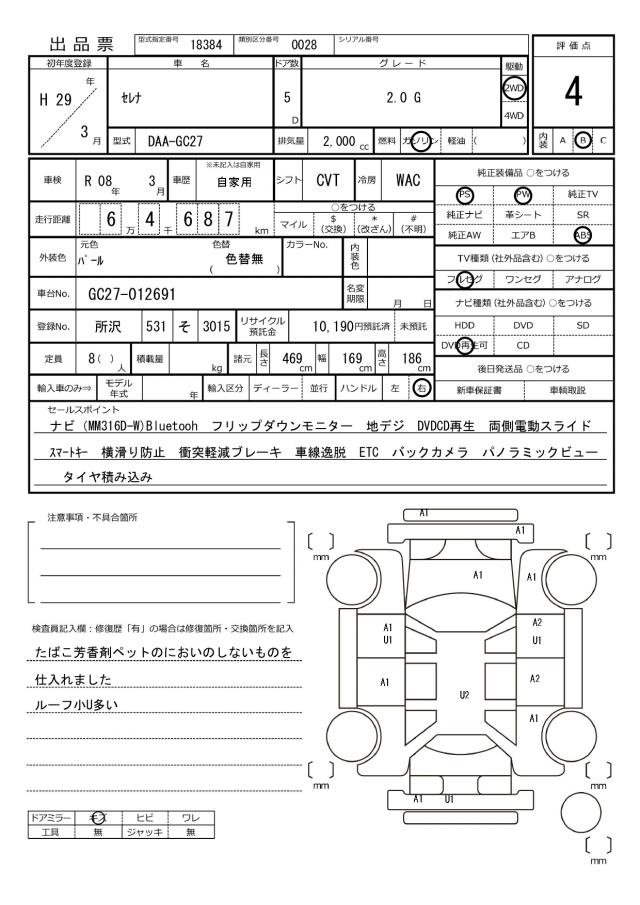 出品票 型式指定番号 18384 類別区分番号 0028 シリアル番号
初年度登録 車名 ドア数 グレード 駆動 評価点
H 29 年 3 月 セレナ 5 D 2.0 G 2WD 4WD 4
型式 DAA-GC27 排気量 2,000 cc 燃料 ガソリン 軽油 ( ) 内装 A B C
車検 R 08 年 3 月 車歴 ※未記入は自家用 自家用 シフト CVT 冷房 WAC
純正装備品 ○をつける
PS PW 純正TV
純正ナビ 革シート SR
純正AW エアB ABS
走行距離 6 万 4 千 6 8 7 km
○をつける
マイル $ (交換) * (改ざん) # (不明)
外装色 元色 パール 色替 ( 色替無 ) カラーNo. 内装色
TV種類 (社外品含む) ○をつける
フルセグ ワンセグ アナログ
車台No. GC27-012691 名変期限 月 日
ナビ種類 (社外品含む) ○をつける
HDD DVD SD
DVD再生可 CD
登録No. 所沢 531 そ 3015 リサイクル預託金 10,190円預託済 未預託
定員 8 ( ) 人 積載量 kg 諸元 長さ 469 cm 幅 169 cm 高さ 186 cm
後日発送品 ○をつける
新車保証書 車輌取説
輸入車のみ⇒ モデル年式 年 輸入区分 ディーラー 並行 ハンドル 左 右
セールスポイント
ナビ (MM316D-W)Bluetooh フリップダウンモニター 地デジ DVDCD再生 両側電動スライド
スマートキー 横滑り防止 衝突軽減ブレーキ 車線逸脱 ETC バックカメラ パノラミックビュー
タイヤ積み込み
注意事項・不具合箇所
検査員記入欄：修復歴「有」の場合は修復箇所・交換箇所を記入
たばこ芳香剤ペットのにおいのしないものを
仕入れました
ルーフ小U多い
ドアミラー キズ ヒビ ワレ
工具 無 ジャッキ 無
A1
A1
mm mm
A1 A1
A1 U1 A2 U1
A1 U2 A2
A1
mm mm
A1 U1
mm